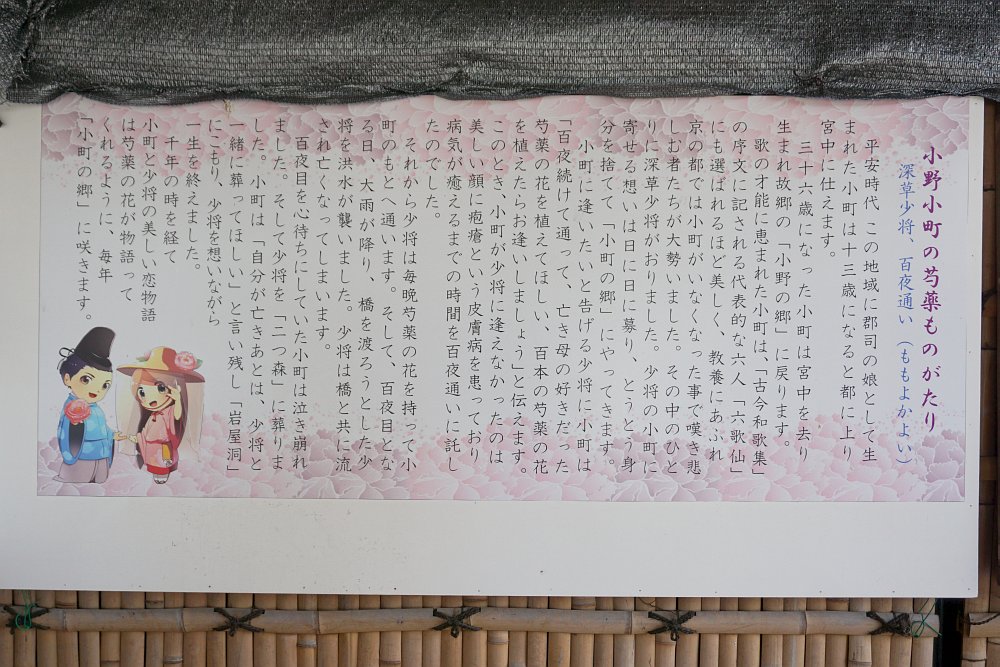 小野小町の芍薬ものがたり
深草少将、百夜通い（ももよかよい）
平安時代 この地域に郡司の娘として生
まれた小町は十三歳になると都に上り
宮中に仕えます。
三十六歳になった小町は宮中を去り
生まれ故郷の「小野の郷」に戻ります。
歌の才能に恵まれた小町は、「古今和歌集」
の序文に記される代表的な六人「六歌仙」
にも選ばれるほど美しく、教養にあふれ
京の都では小町がいなくなった事で嘆き悲
しむ者たちが大勢いました。その中のひと
りに深草少将がおりました。少将の小町に
寄せる想いは日に日に募り、とうとう身
分を捨てて「小町の郷」にやってきます。
小町に逢いたいと告げる少将に小町は
「百夜続けて通って、亡き母の好きだった
芍薬の花を植えてほしい、百本の芍薬の花
を植えたらお逢いしましょう」と伝えます。
このとき、小町が少将に逢えなかったのは
美しい顔に疱瘡という皮膚病を患っており
病気が癒えるまでの時間を百夜通いに託し
たのでした。
それから少将は毎晩芍薬の花を持って小
町のもとへ通います。そして、百夜目とな
る日、大雨が降り、橋を渡ろうとした少
将を洪水が襲いました。少将は橋と共に流
され亡くなってしまいます。
百夜目を心待ちにしていた小町は泣き崩れ
ました。そして少将を「二つ森」に葬りま
した。小町は「自分が亡きあとは、少将と
一緒に葬ってほしい」と言い残し「岩屋洞」
にこもり、少将を想いながら
一生を終えました。
千年の時を経て
小町と少将の美しい恋物語
は芍薬の花が物語って
くれるように、毎年
「小町の郷」に咲きます。